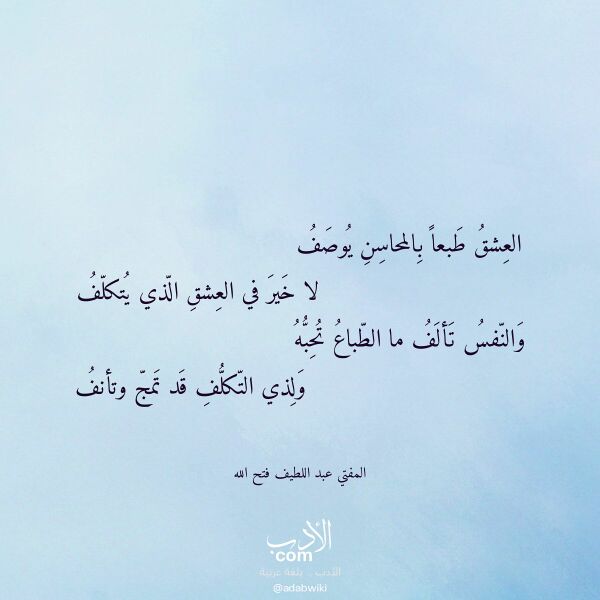 العِشقُ طَبعاً بِالمَحاسِنِ يُوصَفُ
لا خَيرَ في العِشقِ الّذي يُتكلّفُ
وَالنّفسُ تَألَفُ ما الطّباعُ تُحِبُّهُ
وَلِذي التّكلُّفِ قَد تَمجّ وتأنفُ
المفتي عبد اللطيف فتح الله
الأدب
com
الأدب .. بلغة عربية
@adabwiki